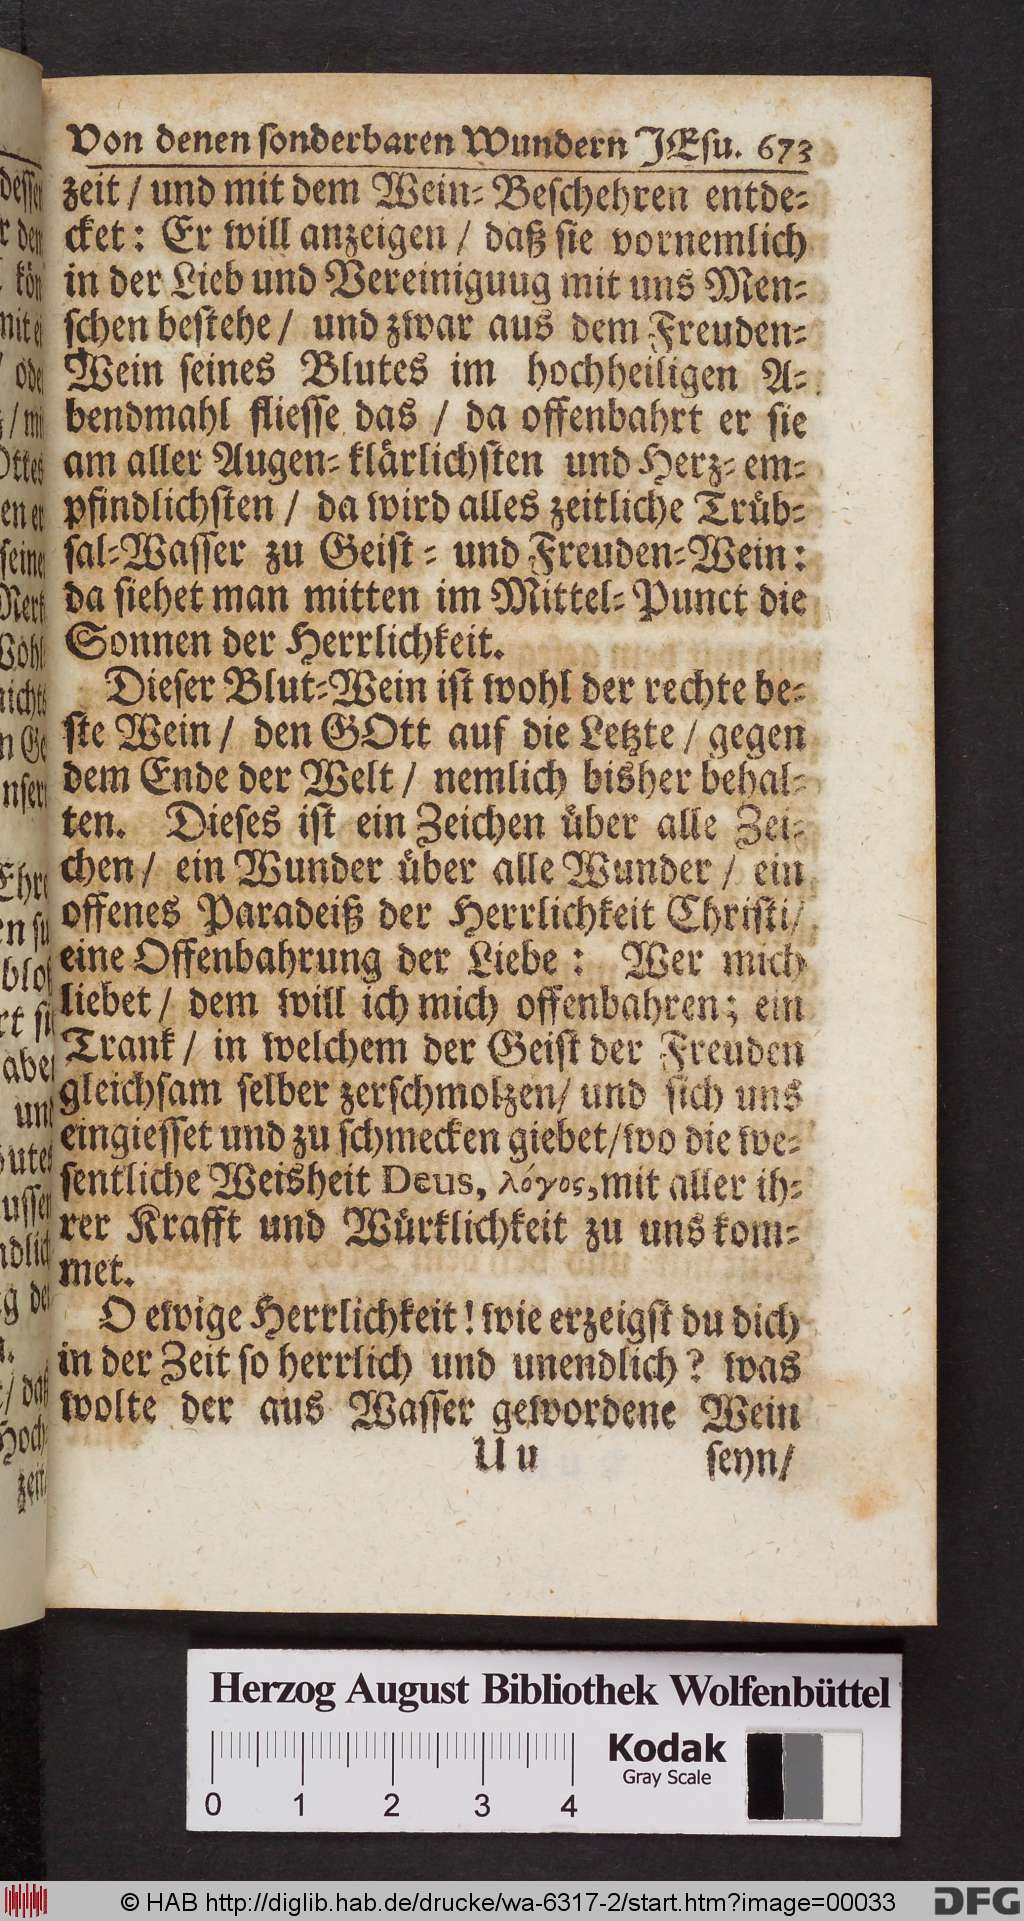 Von denen sonderbaren Wundern JEsu. 673
zeit / und mit dem Wein-Beschehren entde-
cket: Er will anzeigen / daß sie vornemlich
in der Lieb und Vereiniguug mit uns Men-
schen bestehe / und zwar aus dem Freuden-
Wein seines Blutes im hochheiligen A-
bendmahl fliesse das / da offenbahrt er sie
am aller Augen-klärlichsten und Herz-em-
pfindlichsten / da wird alles zeitliche Trüb-
sal-Wasser zu Geist- und Freuden-Wein:
da siehet man mitten im Mittel-Punct die
Sonnen der Herrlichkeit.
Dieser Blut-Wein ist wohl der rechte be-
ste Wein / den GOtt auf die Letzte / gegen
dem Ende der Welt / nemlich bisher behal-
ten. Dieses ist ein Zeichen über alle Zei-
chen / ein Wunder über alle Wunder / ein
offenes Paradeiß der Herrlichkeit Christi /
eine Offenbahrung der Liebe: Wer mich
liebet / dem will ich mich offenbahren; ein
Trank / in welchem der Geist der Freuden
gleichsam selber zerschmolzen / und sich uns
eingiesset und zu schmecken giebet / wo die we-
sentliche Weisheit Deus, λόγος, mit aller ih-
rer Krafft und Würklichkeit zu uns kom-
met.
O ewige Herrlichkeit! wie erzeigst du dich
in der Zeit so herrlich und unendlich? was
wolte der aus Wasser gewordene Wein
Uu seyn /
Herzog August Bibliothek Wolfenbüttel
0 1 2 3 4
Kodak
Gray Scale
© HAB http://diglib.hab.de/drucke/wa-6317-2/start.htm?image=00033
DFG